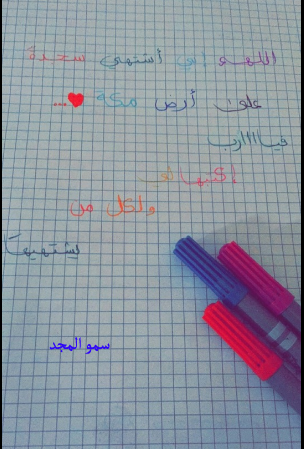 اللهم إني أشتهي سجدة
على أرض مكة ♥...
فياااارب
إكتبها لي
ولكل من
يشتهيها
سمو المجد